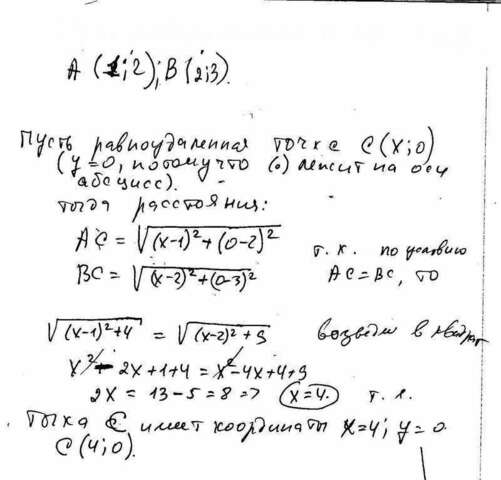 A (1;2); B (2;3).
Пусть равноудаленная точка C(x;0)
(y=0, потому что (·) лежит на оси
абсцисс).
тогда расстояния:
AC = √((x-1)²+(0-2)²) т.к. по условию
BC = √((x-2)²+(0-3)²) AC=BC, то
√((x-1)²+4) = √((x-2)²+9) возведём в квадрат
x² - 2x+1+4 = x²-4x+4+9
2x = 13-5=8 => x=4. т.е.
Точка C имеет координаты x=4; y=0
C(4;0).